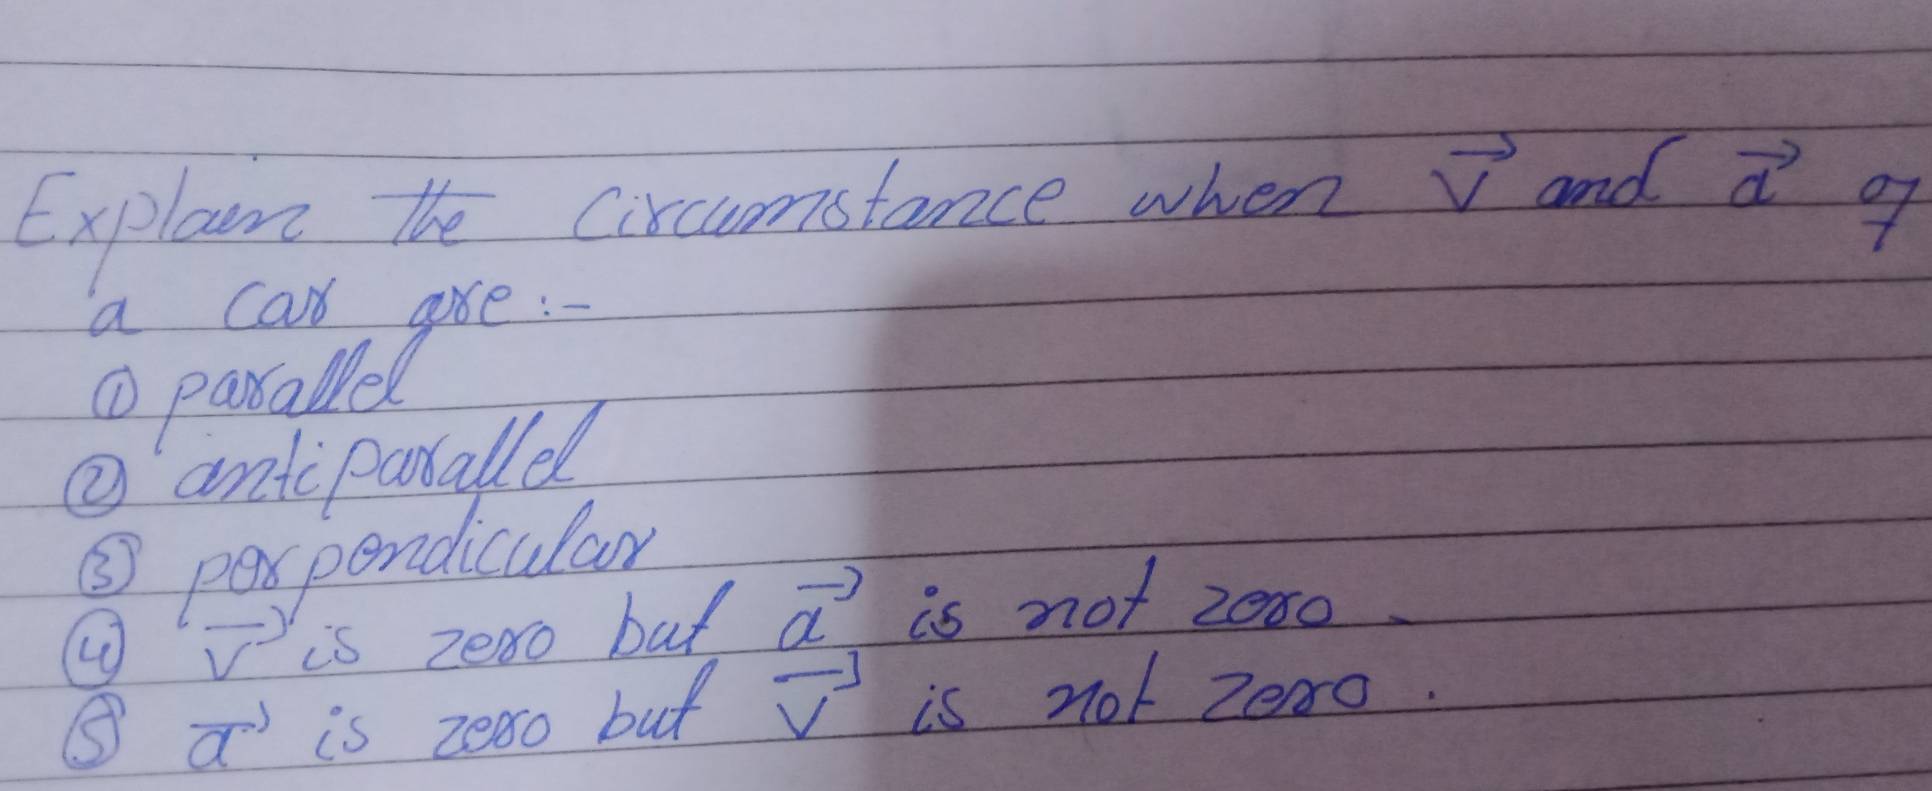 Explain the circumstance when v⃗ and a⃗ of
a car are :-
① parallel
② antiparallel
③ perpendicular
④ v⃗ is zero but a⃗ is not zero.
⑤ a⃗ is zero but v⃗ is not zero.